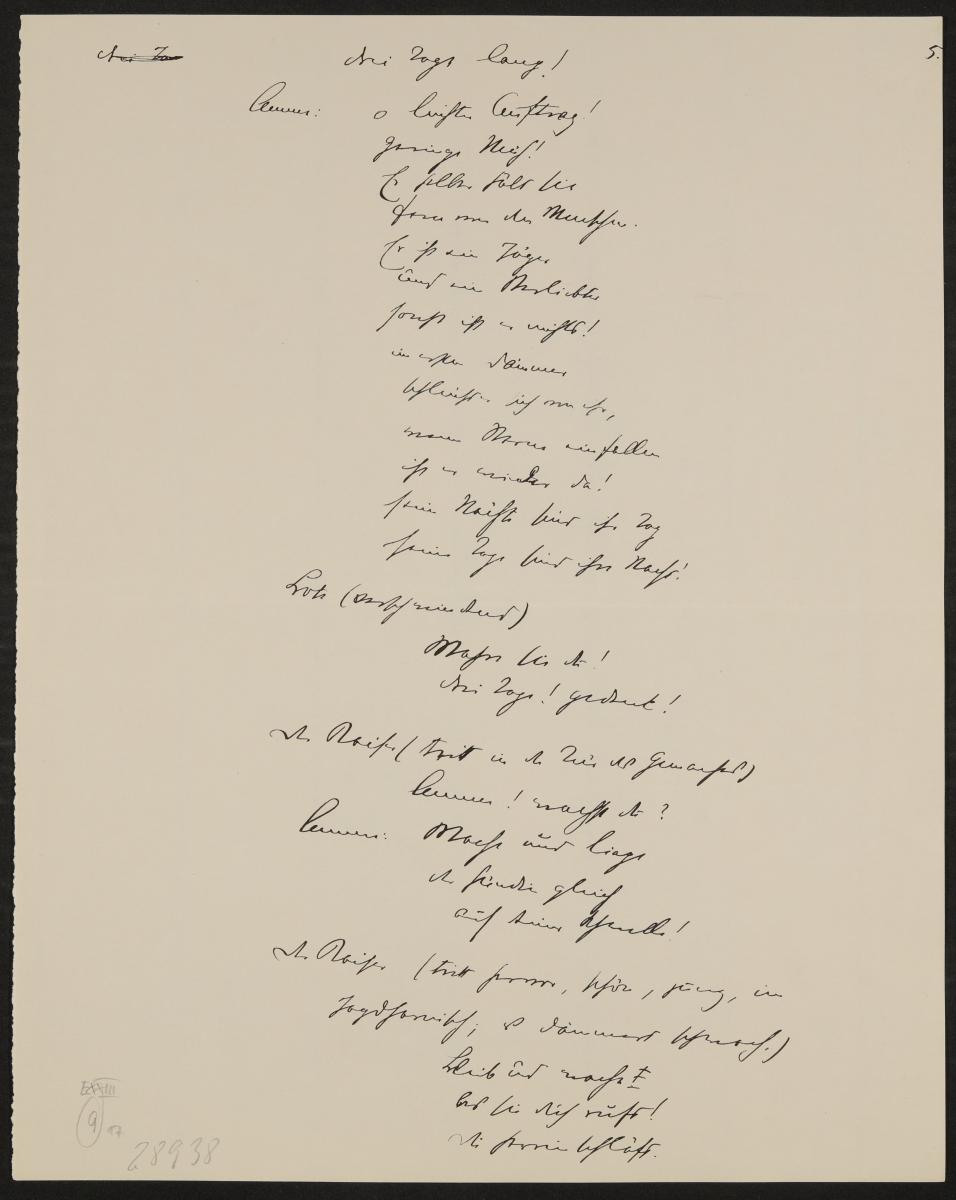 drei Tag
drei Tage lang!
5.
Amme: o leichter Auftrag!
geringe Müh!
Er selber hält sie
ferne von den Menschen.
Er ist ein Jäger
und ein Verliebter
sonst ist er nichts!
im ersten Dämmer
schleicht er sich von ihr,
wenn Sterne einfallen
ist er wieder da!
seine Nächte sind ihr Tag
seine Tage sind ihre Nacht!
Bote (verschwindend)
Wahre sie du!
drei Tage! gedenk!
der Kaiser (tritt in die Tür des Gemaches)
Amme! wachst du?
Amme: Wache und liege
der Hündin gleich
auf deiner Schwelle!
der Kaiser (tritt hervor, schön, jung, im
Jagdharnisch; es dämmert schwach.)
Bleib und wache
bis sie dich ruft!
die Herrin schläft.
E XXIII
9
28938